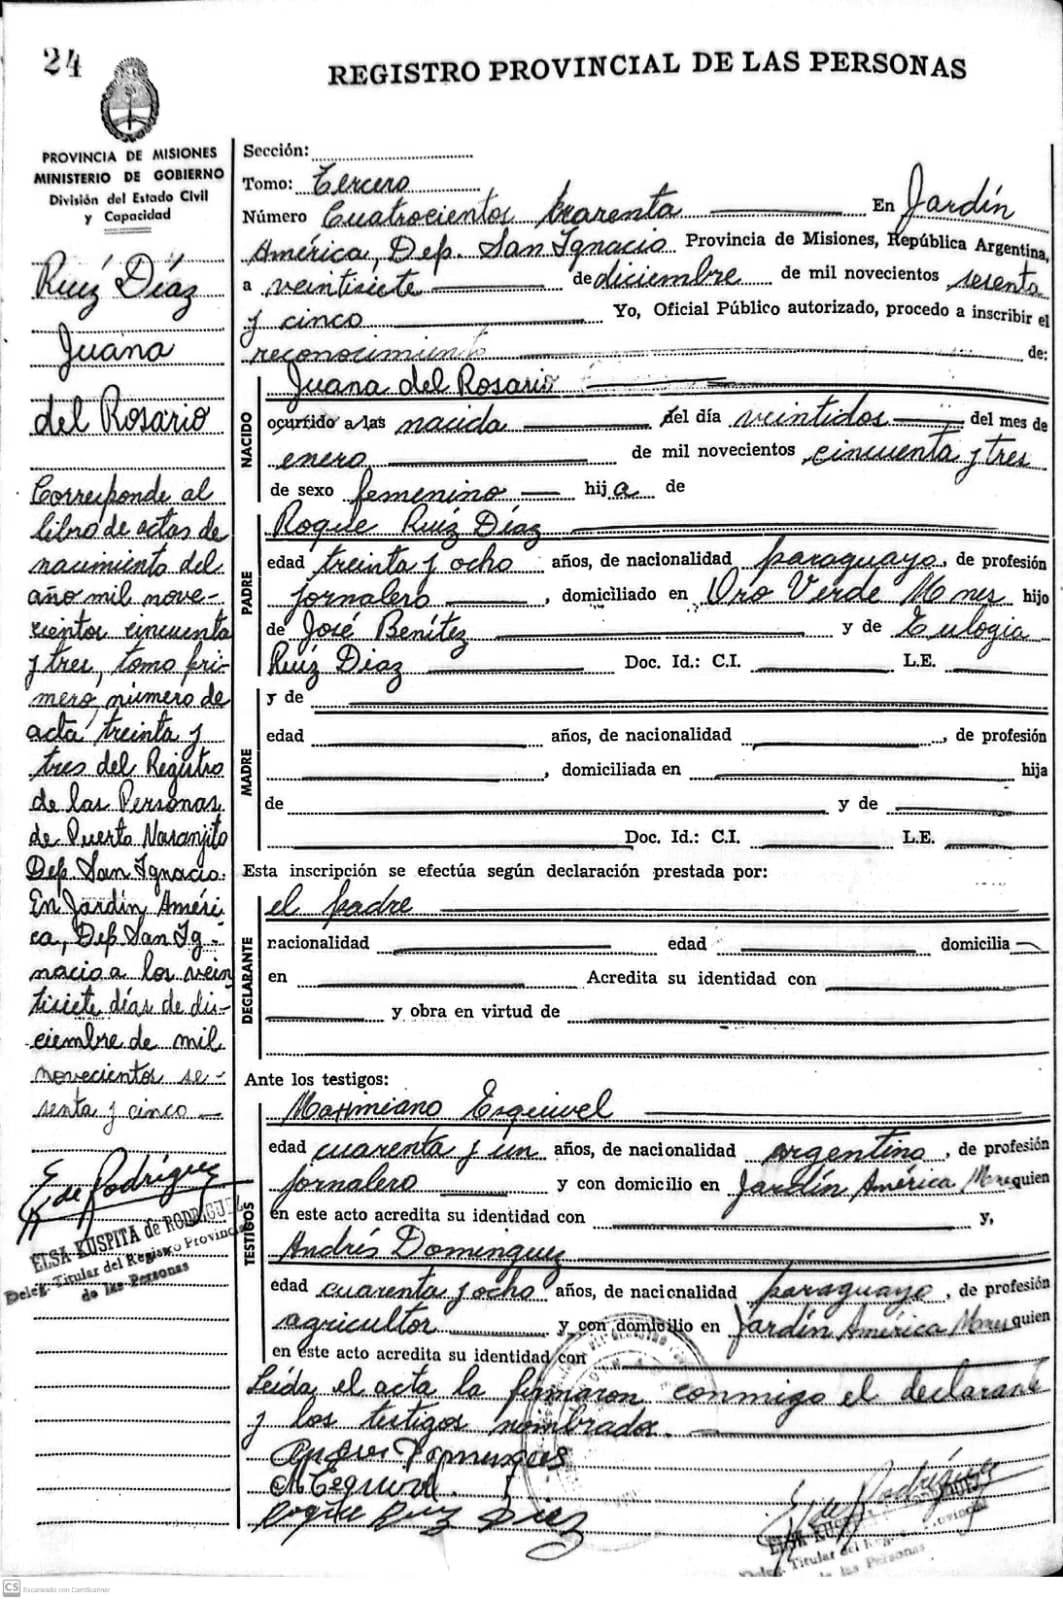 24
REGISTRO PROVINCIAL DE LAS PERSONAS
PROVINCIA DE MISIONES
MINISTERIO DE GOBIERNO
División del Estado Civil
y Capacidad
Ruíz Díaz
Juana
del Rosario
Corresponde al
libro de actas de
nacimiento del
año mil nove-
cientos cincuenta
y tres, tomo pri-
mero, número de
acta treinta y
tres del Registro
de las Personas
de Puerto Naranjito
Dep. San Ignacio.
En Jardín Améri-
ca, Dep. San Ig-
nacio a los vein
tisiete días de di-
ciembre de mil
novecientos se-
senta y cinco
E. de Rodríguez
ELSA KUSPITA de RODRIGUEZ
Deleg. Titular del Registro Provincial
de las Personas
Sección:
Tomo: Tercero
Número Cuatrocientos cuarenta En Jardín
América, Dep. San Ignacio Provincia de Misiones, República Argentina,
a veintisiete de diciembre de mil novecientos sesenta
y cinco Yo, Oficial Público autorizado, procedo a inscribir el
reconocimiento de:
NACIDO
Juana del Rosario
ocurrido a las nacida del día veintidos del mes de
enero de mil novecientos cincuenta y tres
de sexo femenino hija de
PADRE
Roque Ruíz Díaz
edad treinta y ocho años, de nacionalidad paraguayo, de profesión
jornalero, domiciliado en Oro Verde Mnes hijo
de José Benítez y de Eulogia
Ruíz Díaz Doc. Id.: C.I. L.E.
MADRE
y de
edad años, de nacionalidad , de profesión
, domiciliada en hija
de y de
Doc. Id.: C.I. L.E.
Esta inscripción se efectúa según declaración prestada por:
DECLARANTE
el padre
nacionalidad edad domicilia
en Acredita su identidad con
y obra en virtud de
Ante los testigos:
TESTIGOS
Maximiano Esquivel
edad cuarenta y un años, de nacionalidad argentino, de profesión
jornalero y con domicilio en Jardín América Mnes quien
en este acto acredita su identidad con y,
Andrés Dominguez
edad cuarenta y ocho años, de nacionalidad paraguayo, de profesión
agricultor y con domicilio en Jardín América Mnes quien
en este acto acredita su identidad con
Leída el acta la firmaron conmigo el declarante
y los testigos nombrados.
M Esquivel.
Roque Ruiz Diez
E. de Rodríguez
ELSA KUSPITA de RODRIGUEZ
Deleg. Titular del Reg. Provincial
de las Personas
CS Escaneado con CamScanner